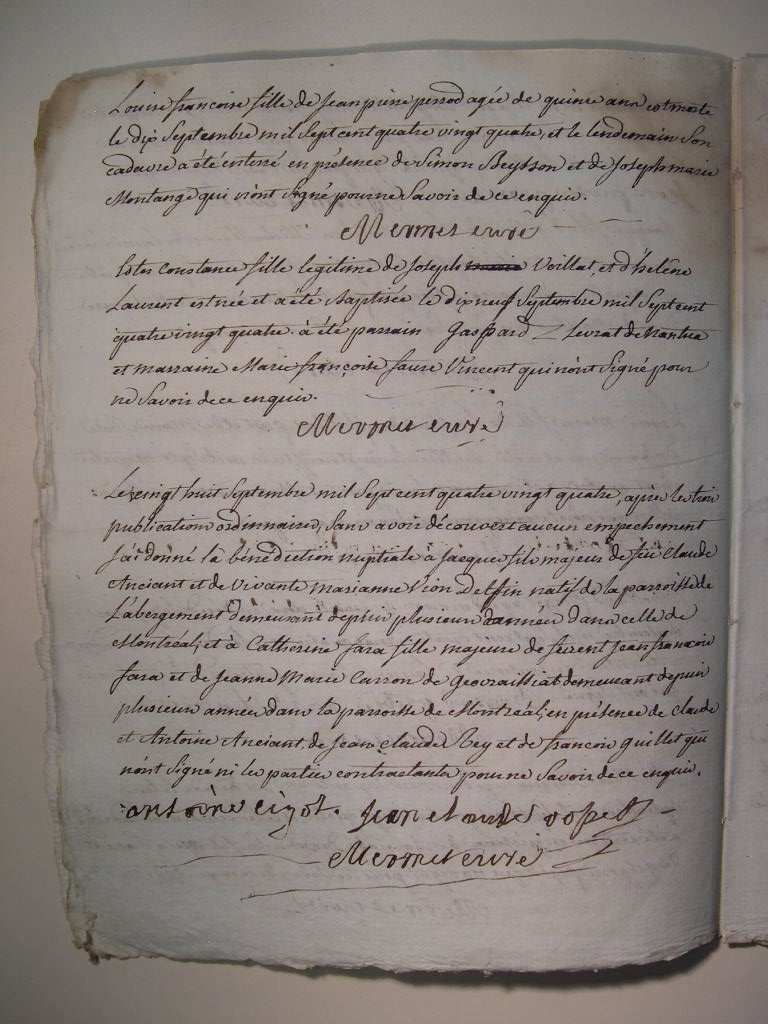 Louise francoise fille de Jean pierre perrod agée de quinze ans est morte
le dix Septembre mil Sept cent quatre vingt quatre, et le lendemain Son
cadavre a été enterré en présence de Simon Beysson et de Joseph marie
Montange qui n'ont Signé pour ne Savoir de ce enquis.
Mermet curé
Constance fille legitime de Joseph marie Voillat, et d'hélène
Laurent est née et a été Baptisée le dix neuf Septembre mil Sept cent
quatre vingt quatre. à été parrain Gaspard Levrat de Nantua
et marraine Marie françoise faure Vincent qui n'ont Signé pour
ne Savoir de ce enquis.
Mermet curé
Le vingt huit Septembre mil Sept cent quatre vingt quatre, après les trois
publications ordinnaires, Sans avoir découvert aucun empechement
J'ai donné la bénédiction nuptiale à Jacques fils majeur de feu Claude
Anciant et de Vivante marianne Vion Delfin natif de la parroisse de
L'abergement demeurant depuis plusieurs années dans celle de
Montréal; et à Catherine fara fille majeure de feu Jean francois
fara et de Jeanne Marie Carron de demeurant depuis
plusieurs années dans la parroisse de Montréal; en présence de Claude
et Antoine Anciant, de Jean Claude Rey et de francois guillet qui
n'ont Signé ni les parties contractantes pour ne Savoir de ce enquis.
antoine Jean claude
Mermet curé